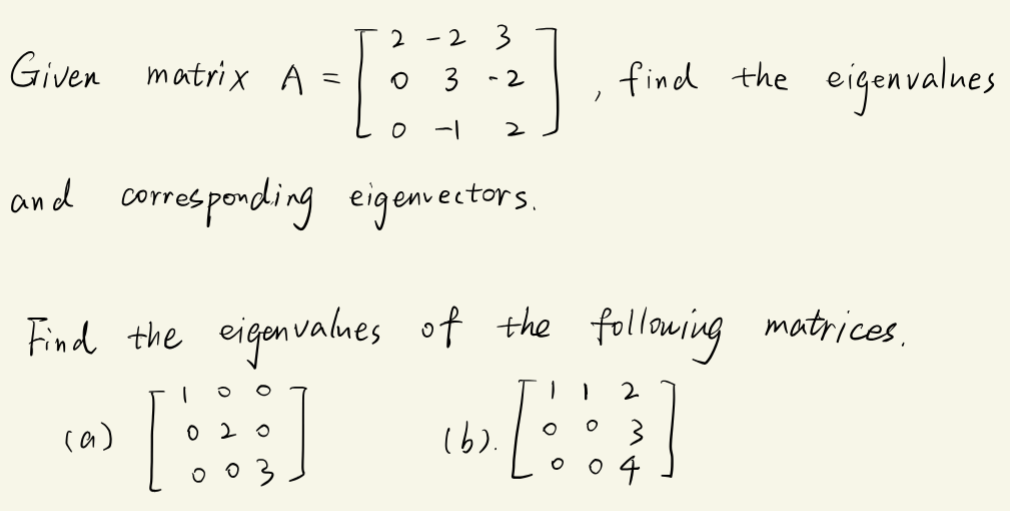 Given matrix A = [ 2 -2 3 ; 0 3 -2 ; 0 -1 2 ] , find the eigenvalues
and corresponding eigenvectors.
Find the eigenvalues of the following matrices.
(a) [ 1 0 0 ; 0 2 0 ; 0 0 3 ] (b). [ 1 1 2 ; 0 0 3 ; 0 0 4 ]